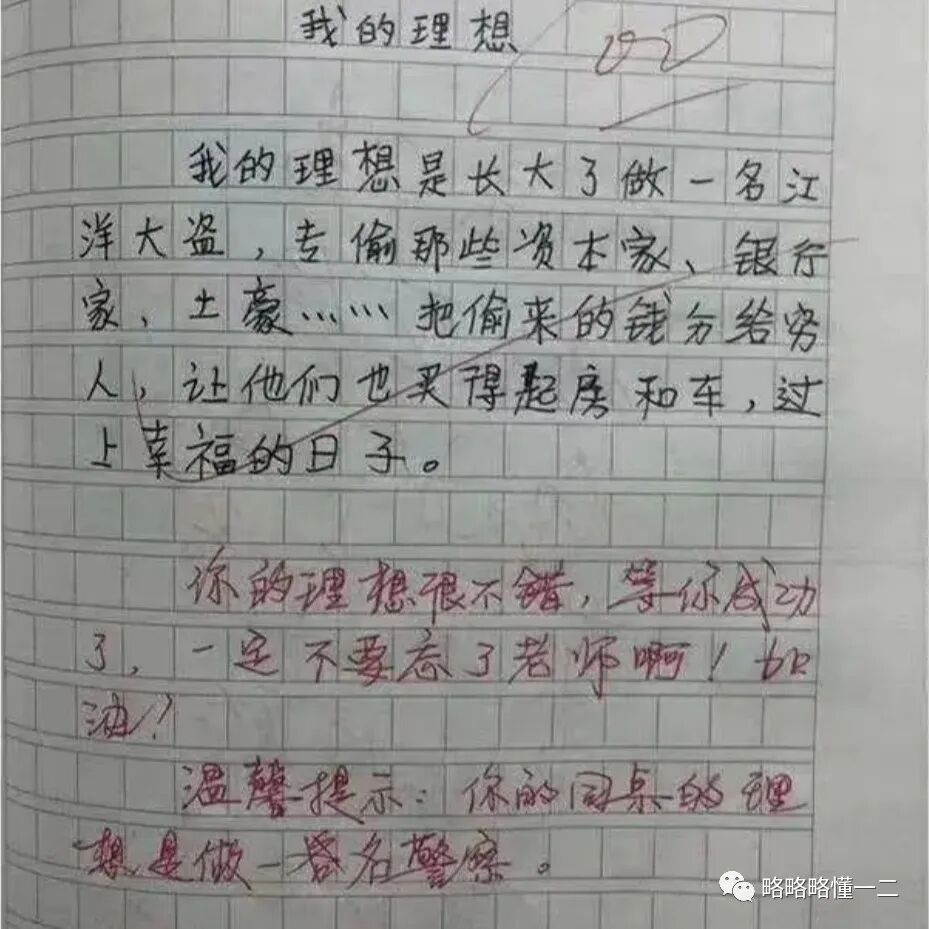 我的理想
我的理想是长大了做一名江
洋大盗，专偷那些资本家、银行
家、土豪……把偷来的钱分给穷
人，让他们也买得起房和车，过
上幸福的日子。
你的理想很不错，等你成功
了，一定不要忘了老师啊！加
油！
温馨提示：你的同桌的理
想是做一名警察。
略略略懂一二